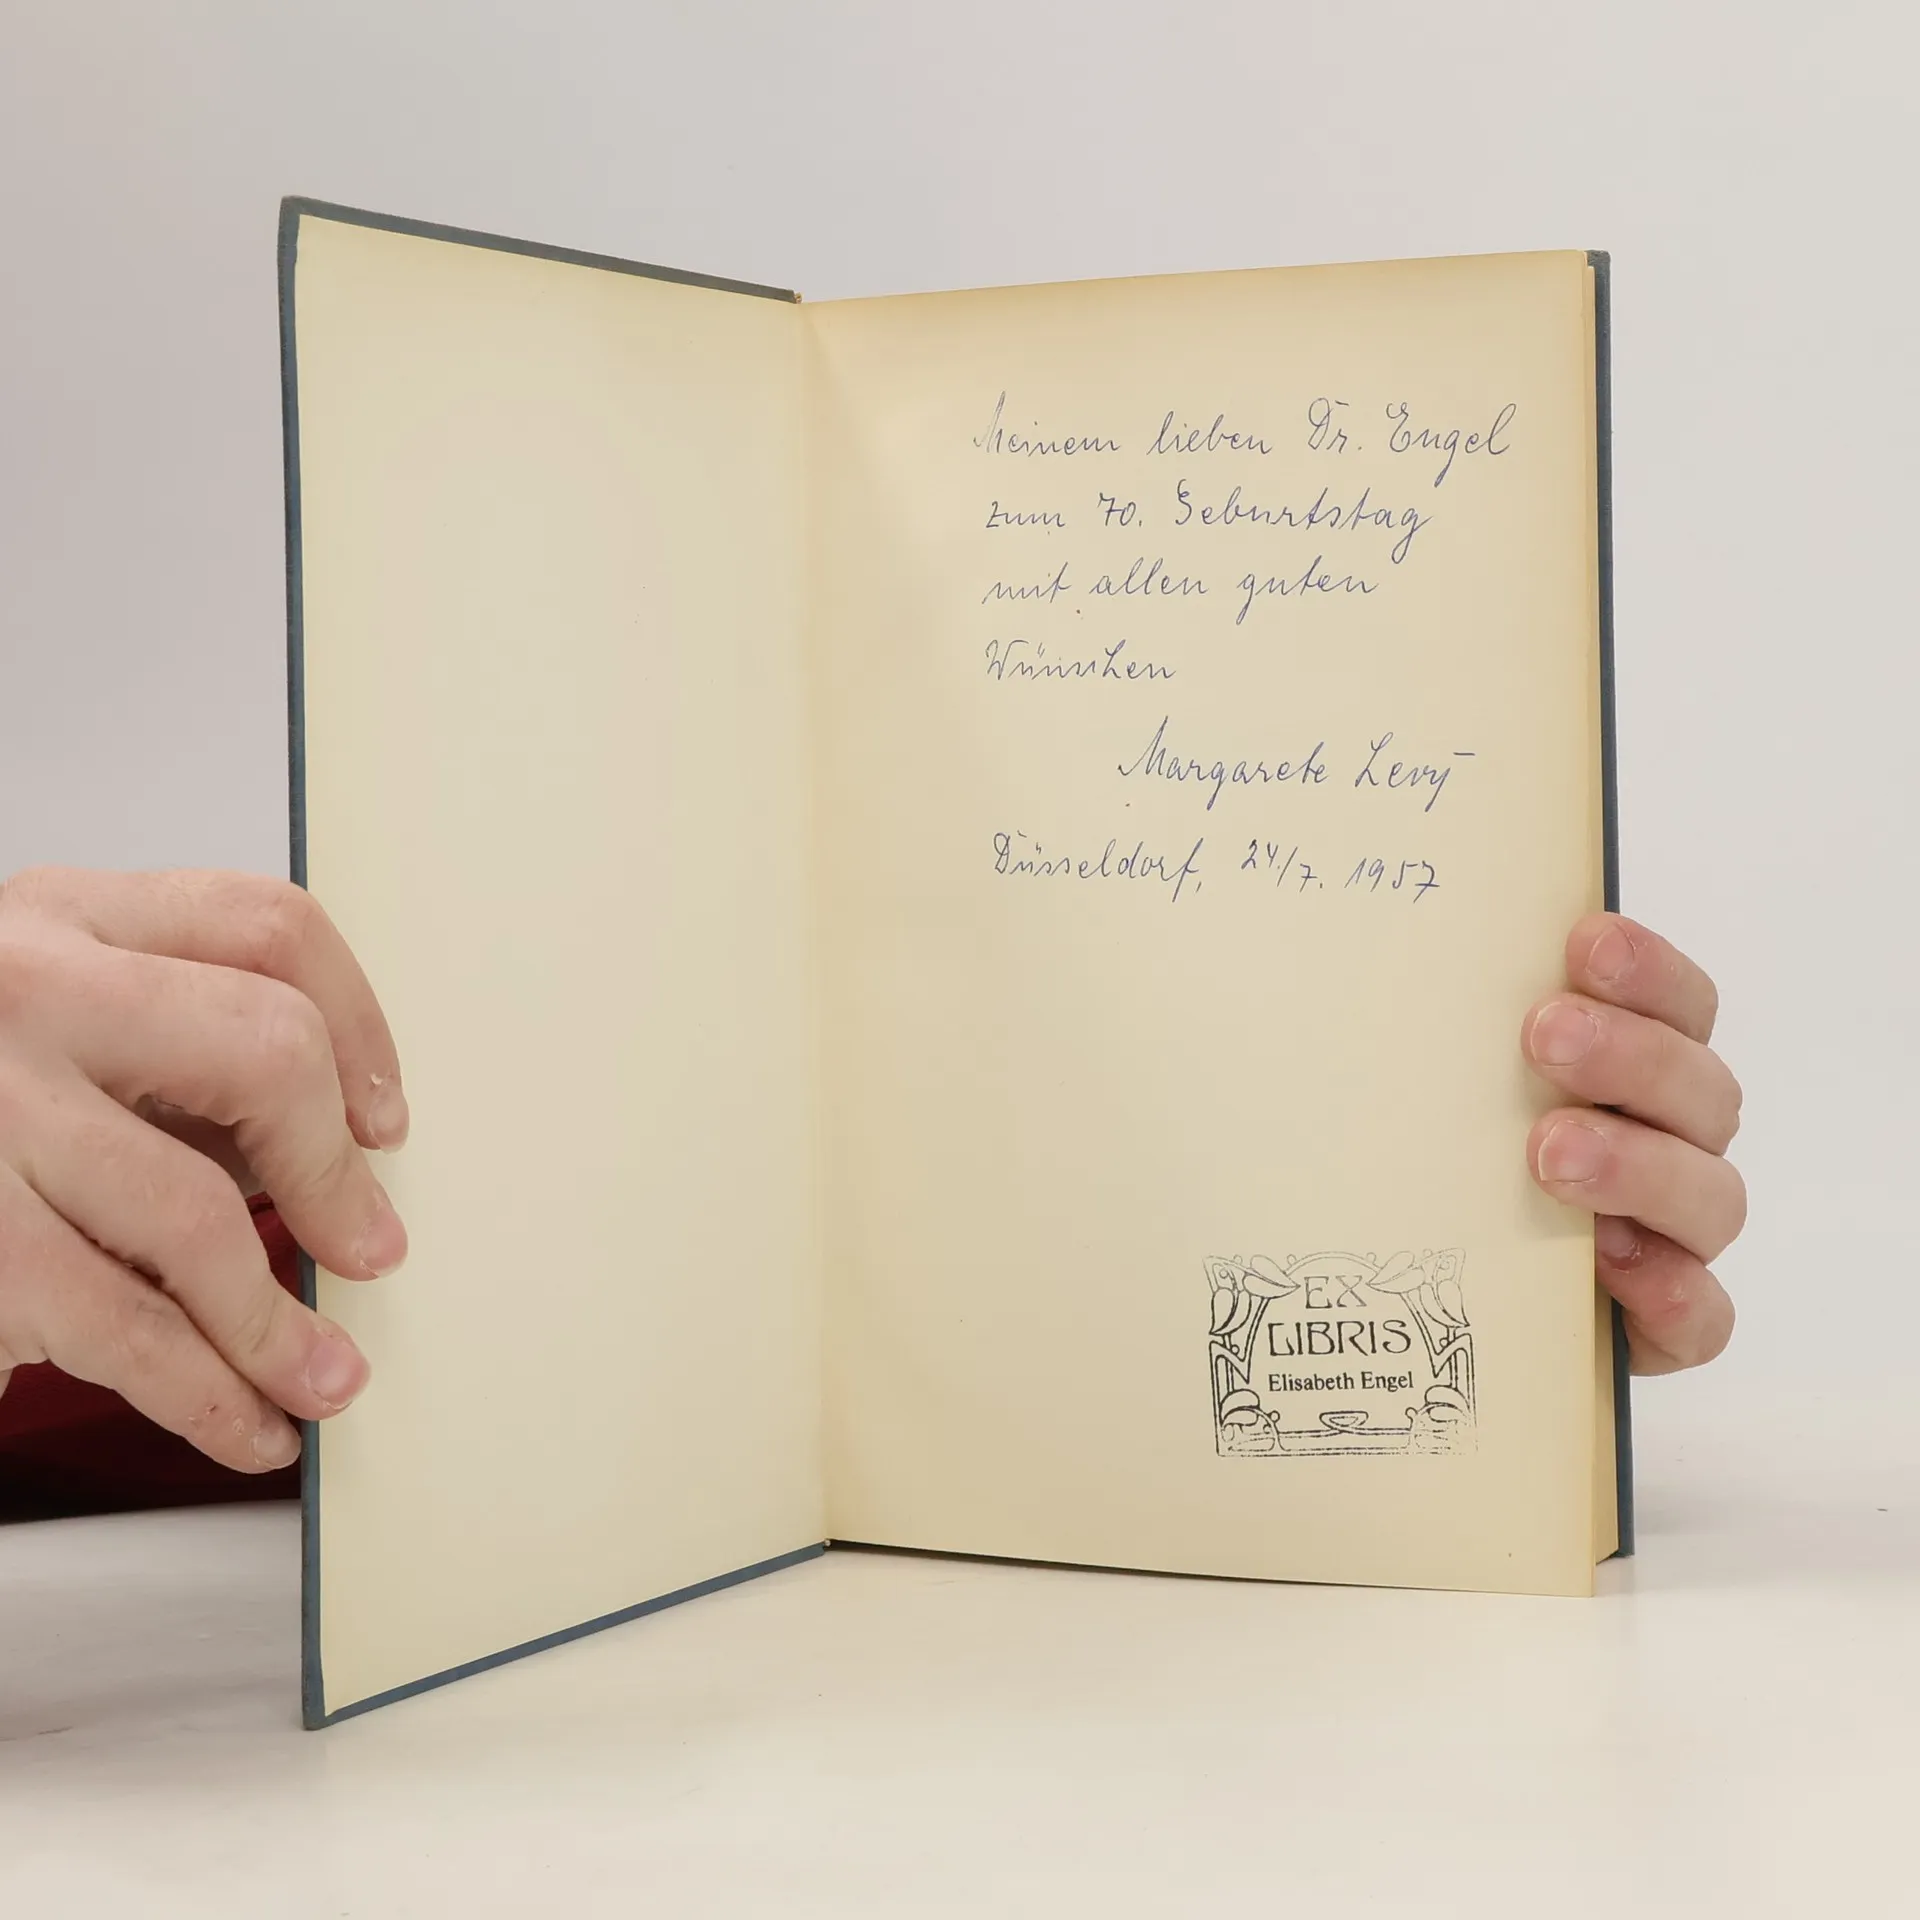 Meinem lieben Dr. Engel
zum 70. Geburtstag
mit allen guten
Wünschen
Margarete Levy
Düsseldorf, 24./7. 1957
EX
LIBRIS
Elisabeth Engel